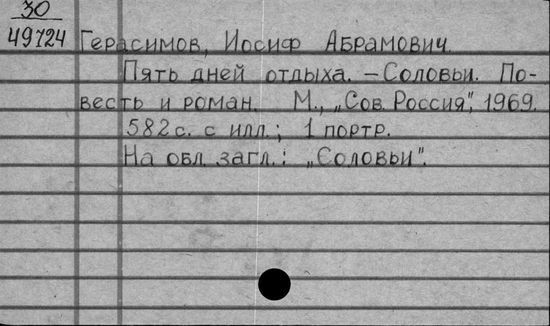 30
49724
Герасимов, Иосиф Абрамович.
Пять дней отдыха. – Соловьи. По-
весть и роман. М., „Сов. Россия", 1969.
582 с. с илл.; 1 портр.
На обл. загл.: „Соловьи".